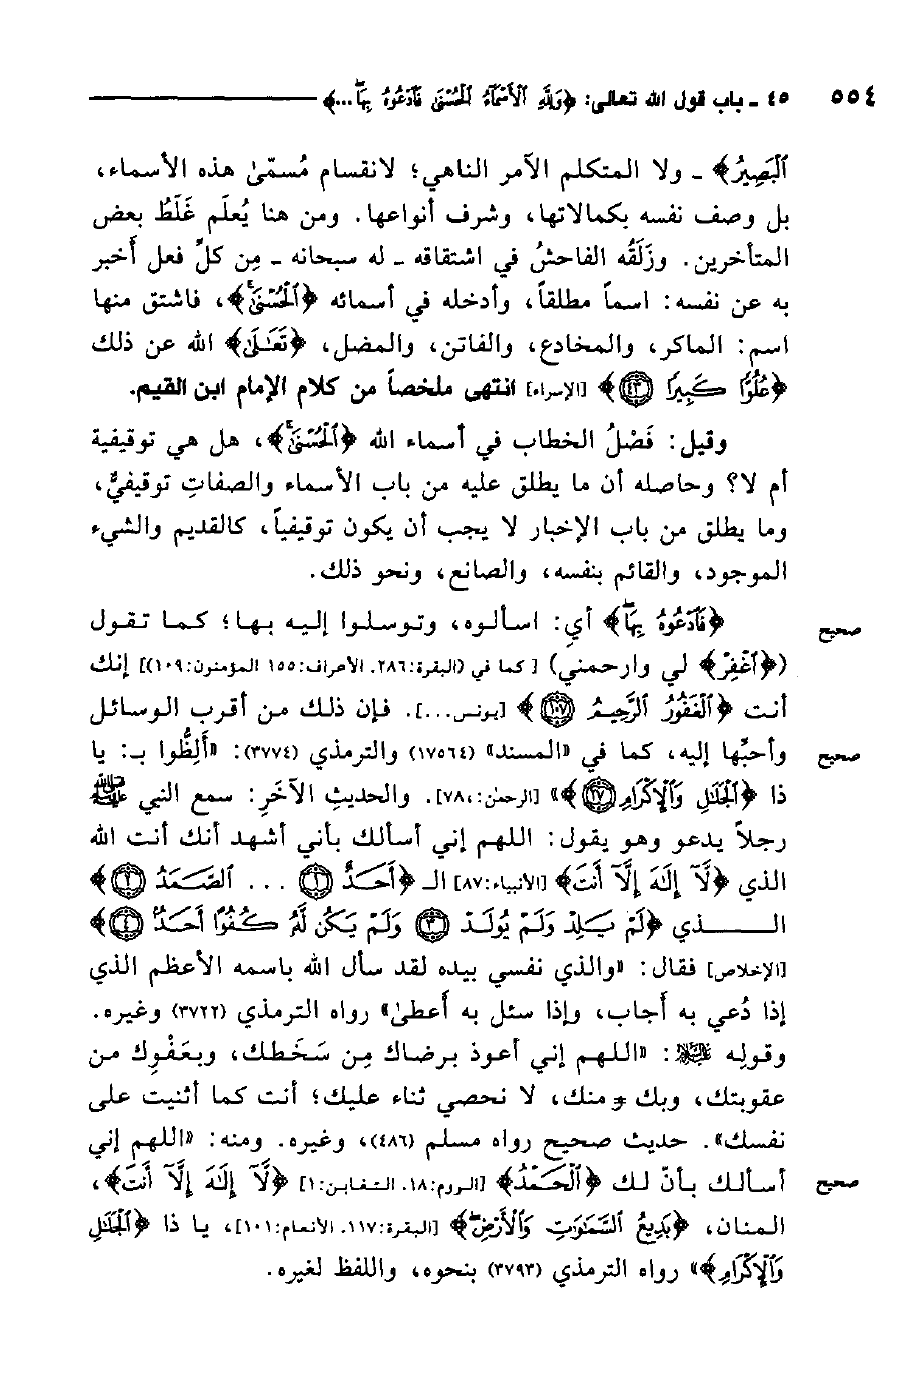 ٥٥٤ ٤٥ ـ باب قول الله تعالى: ﴿وَلِلَّهِ ٱلْأَسْمَآءُ ٱلْحُسْنَىٰ فَٱدْعُوهُ بِهَا ...﴾
ٱلْبَصِيرُ﴾ ـ ولا المتكلم الآمر الناهي؛ لانقسام مُسمّىٰ هذه الأسماء،
بل وصف نفسه بكمالاتها، وشرف أنواعها. ومن هنا يُعلَم غَلَطُ بعض
المتأخرين. وزَلَقُه الفاحشُ في اشتقاقه ـ له سبحانه ـ مِن كلِّ فعل أَخبر
به عن نفسه: اسماً مطلقاً، وأدخله في أسمائه ﴿ٱلْحُسْنَىٰ﴾، فاشتق منها
اسم: الماكر، والمخادع، والفاتن، والمضل، ﴿تَعَـٰلَىٰ﴾ الله عن ذلك
﴿عُلُوًّا كَبِيرًا ٤٣﴾ [الإسراء] انتهى ملخصاً من كلام الإمام ابن القيم.
وقيل: فَصْلُ الخطاب في أسماء الله ﴿ٱلْحُسْنَىٰ﴾، هل هي توقيفية
أم لا؟ وحاصله أن ما يطلق عليه من باب الأسماء والصفاتِ توقيفيٌّ،
وما يطلق من باب الإخبار لا يجب أن يكون توقيفياً، كالقديم والشيء
الموجود، والقائم بنفسه، والصانع، ونحو ذلك.
صحيح ﴿فَٱدْعُوهُ بِهَا﴾ أي: اسألوه، وتوسلوا إليه بها؛ كما تقول
(﴿ٱغْفِرْ﴾ لي وارحمني) [كما في (البقرة:٢٨٦. الأعراف:١٥٥ المؤمنون:١٠٩)] إنك
أنت ﴿ٱلْغَفُورُ ٱلرَّحِيمُ ١٠٧﴾ [يونس...]. فإن ذلك من أقرب الوسائل
صحيح وأحبّها إليه، كما في «المسند» (١٧٥٦٤) والترمذي (٣٧٧٤): «أَلِظُّوا بـ: يا
ذا ﴿ٱلْجَلَـٰلِ وَٱلْإِكْرَامِ ٢٧﴾» [الرحمٰن:٧٨،]. والحديثِ الآخَرِ: سمع النبي ﷺ
رجلاً يدعو وهو يقول: اللهم إني أسألك بأني أشهد أنك أنت الله
الذي ﴿لَّآ إِلَـٰهَ إِلَّآ أَنتَ﴾ [الأنبياء:٨٧] الـ ﴿أَحَدٌ ١ ... ٱلصَّمَدُ ٢﴾
الـــذي ﴿لَمْ يَلِدْ وَلَمْ يُولَدْ ٣ وَلَمْ يَكُن لَّهُۥ كُفُوًا أَحَدٌ ٤﴾
[الإخلاص] فقال: «والذي نفسي بيده لقد سأل الله باسمه الأعظم الذي
إذا دُعي به أَجاب، وإذا سئل به أَعطىٰ» رواه الترمذي (٣٧٢٢) وغيره.
وقولِه ﷺ: «اللهم إني أعوذ برضاك مِن سَخَطك، وبعَفْوِك من
عقوبتك، وبك منك، لا نحصي ثناء عليك؛ أنت كما أثنيت على
نفسك». حديث صحيح رواه مسلم (٤٨٦)، وغيره. ومنه: «اللهم إني
صحيح أسألك بأنّ لك ﴿ٱلْحَمْدُ﴾ [الروم:١٨. التغابن:١] ﴿لَّآ إِلَـٰهَ إِلَّآ أَنتَ﴾،
المنان، ﴿بَدِيعُ ٱلسَّمَـٰوَٰتِ وَٱلْأَرْضِ﴾ [البقرة:١١٧. الأنعام:١٠١]، يا ذا ﴿ٱلْجَلَـٰلِ
وَٱلْإِكْرَامِ﴾» رواه الترمذي (٣٧٩٣) بنحوه، واللفظ لغيره.